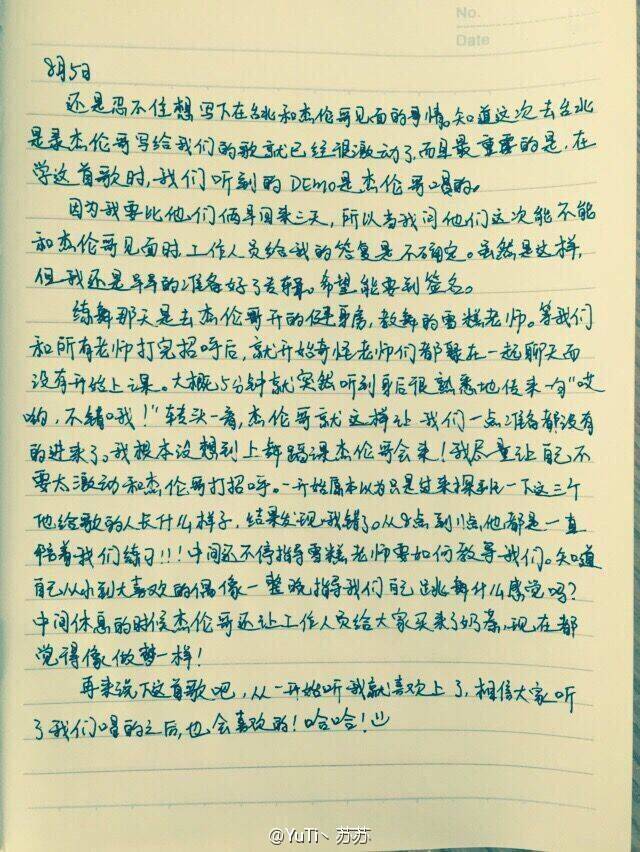 No.
Date
8月5日
还是忍不住想写下在台北和杰伦哥见面的事情。知道这次去台北
是录杰伦哥写给我们的歌就已经很激动了,而且最重要的是,在
学这首歌时,我们听到的DEMO是杰伦哥唱的。
因为我要比他们俩早回来三天,所以当我问他们这次能不能
和杰伦哥见面时,工作人员给我的答复是不确定。虽然是这样,
但我还是早早的准备好了专辑。希望能要到签名。
练舞那天是去杰伦哥开的健身房,教舞的雪糕老师。等我们
和所有老师打完招呼后,就开始奇怪老师们都聚在一起聊天而
没有开始上课。大概5分钟就突然听到身后很熟悉地传来一句“哎
哟,不错哦!”转头一看,杰伦哥就这样让我们一点准备都没有
的进来了。我根本没想到上舞蹈课杰伦哥会来!我尽量让自己不
要太激动和杰伦哥打招呼。一开始原本以为只是过来探班一下这三个
他给歌的人长什么样子,结果发现我错了。从9点到11点他都是一直
陪着我们练习!!!中间还不停指导雪糕老师要如何教导我们。知道
自己从小到大喜欢的偶像一整晚指导我们自己跳舞什么感觉吗?
中间休息的时候杰伦哥还让工作人员给大家买来了奶茶,现在都
觉得像做梦一样!
再来说下这首歌吧,从一开始听我就喜欢上了,相信大家听
了我们唱的之后,也会喜欢的!哈哈!
@YuTi丶苏苏